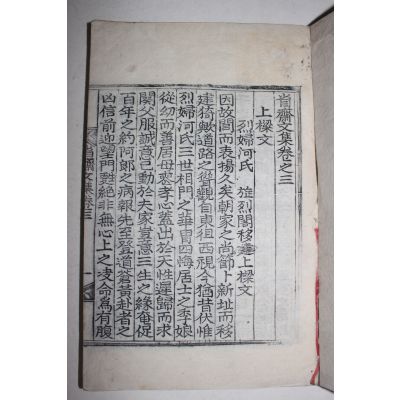 肯齋文集卷之三
上樑文
烈婦河氏 旌烈閣移建上樑文
因故閭而表揚久矣朝家之尚節卜新址而移
建猗歟道路之聳觀自東徂西視今猶昔伏惟
烈婦河氏三世相門之華胄四悔居士之季娘
從幼而善居母喪孝心蓋出於天性遲歸而求
闋父服誠意已動於夫家豈意三生之緣奄促
百年之約阿郎之病報先至登道蒼黃赴者之
凶信前迎望門甦絕非無心上之凌命爲有腹
肯齋文集卷三 一